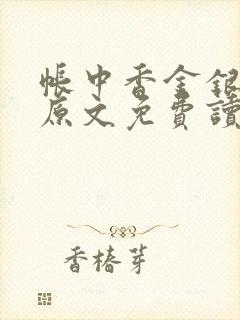 帳中香金銀
原文免費讀
香椿芽